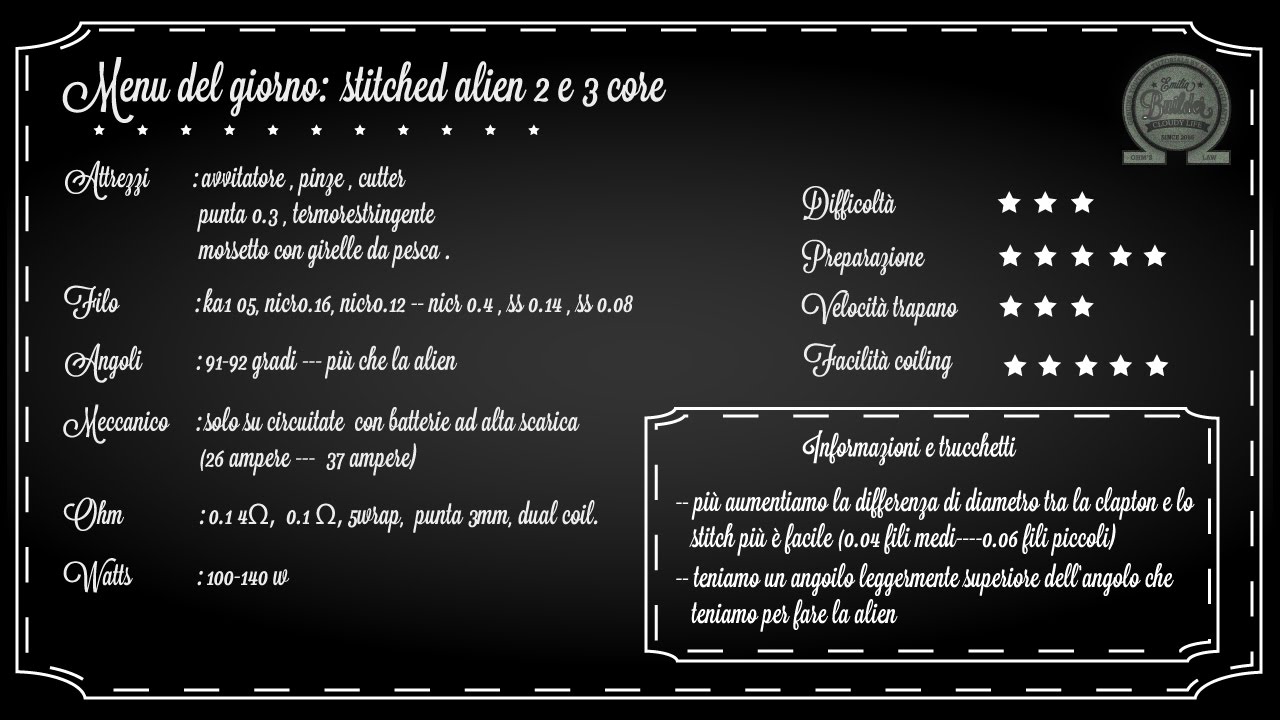 Menu del giorno: stitched alien 2 e 3 core
Attrezzi : avvitatore , pinze , cutter
punta 0.3 , termorestringente
morsetto con girelle da pesca .
Filo : ka1 05, nicr0.16, nicr0.12 -- nicr 0.4 , ss 0.14 , ss 0.08
Angoli : 91-92 gradi --- più che la alien
Meccanico : solo su circuitate con batterie ad alta scarica
(26 ampere --- 37 ampere)
Ohm : 0.1 4Ω, 0.1 Ω, 5wrap, punta 3mm, dual coil.
Watts : 100-140 w
Emilia
Builder
CLOUDY LIFE
SINCE 2016
OHM'S LAW
Difficoltà
Preparazione
Velocità trapano
Facilità coiling
Informazioni e trucchetti
-- più aumentiamo la differenza di diametro tra la clapton e lo
stitch più è facile (0.04 fili medi----0.06 fili piccoli)
-- teniamo un angoilo leggermente superiore dell'angolo che
teniamo per fare la alien